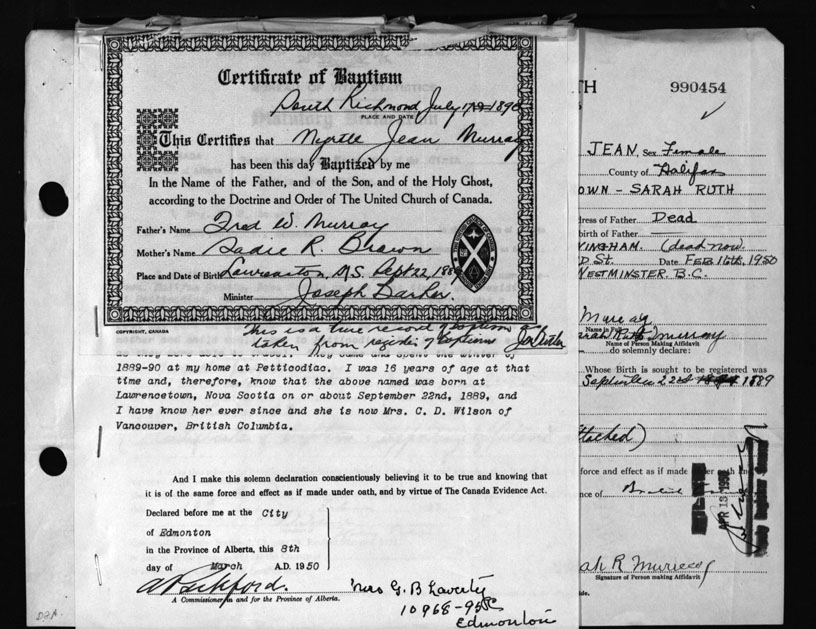 Certificate of Baptism
South Richmond July 1890
PLACE AND DATE
This Certifies that Myrtle Jean Murray
has been this day Baptized by me
In the Name of the Father, and of the Son, and of the Holy Ghost,
according to the Doctrine and Order of The United Church of Canada.
Father's Name Fred W. Murray
Mother's Name Sadie R. Brown
Place and Date of Birth N.S. Sept 22, 1889
Minister Joseph Barker.
COPYRIGHT, CANADA
This is a true record of baptism as
taken from register of baptisms
1889-90 at my home at Petticodiac. I was 16 years of age at that
time and, therefore, know that the above named was born at
Lawrencetown, Nova Scotia on or about September 22nd, 1889, and
I have know her ever since and she is now Mrs. C. D. Wilson of
Vancouver, British Columbia.
And I make this solemn declaration conscientiously believing it to be true and knowing that
it is of the same force and effect as if made under oath, and by virtue of The Canada Evidence Act.
Declared before me at the City
of Edmonton
in the Province of Alberta, this 8th
day of March A.D. 1950
A Commissioner in and for the Province of Alberta.
Mrs G. B Laverty
Edmonton
TH 990454
JEAN, Sex Female
County of Halifax
OWN - SARAH RUTH
dress of Father Dead
birth of Father
VINGHAM. (dead now.
D St. Date FEB 16th, 1950
WESTMINSTER. B.C.
Murray
Name in
Sarah Ruth Murray
Name of Person Making Affidavit
do solemnly declare:
Whose Birth is sought to be registered was
September 22nd 1889
ttached)
force and effect as if made under oath
nce of
APR 13 1950
ah R Murray
Signature of Person making Affidavit